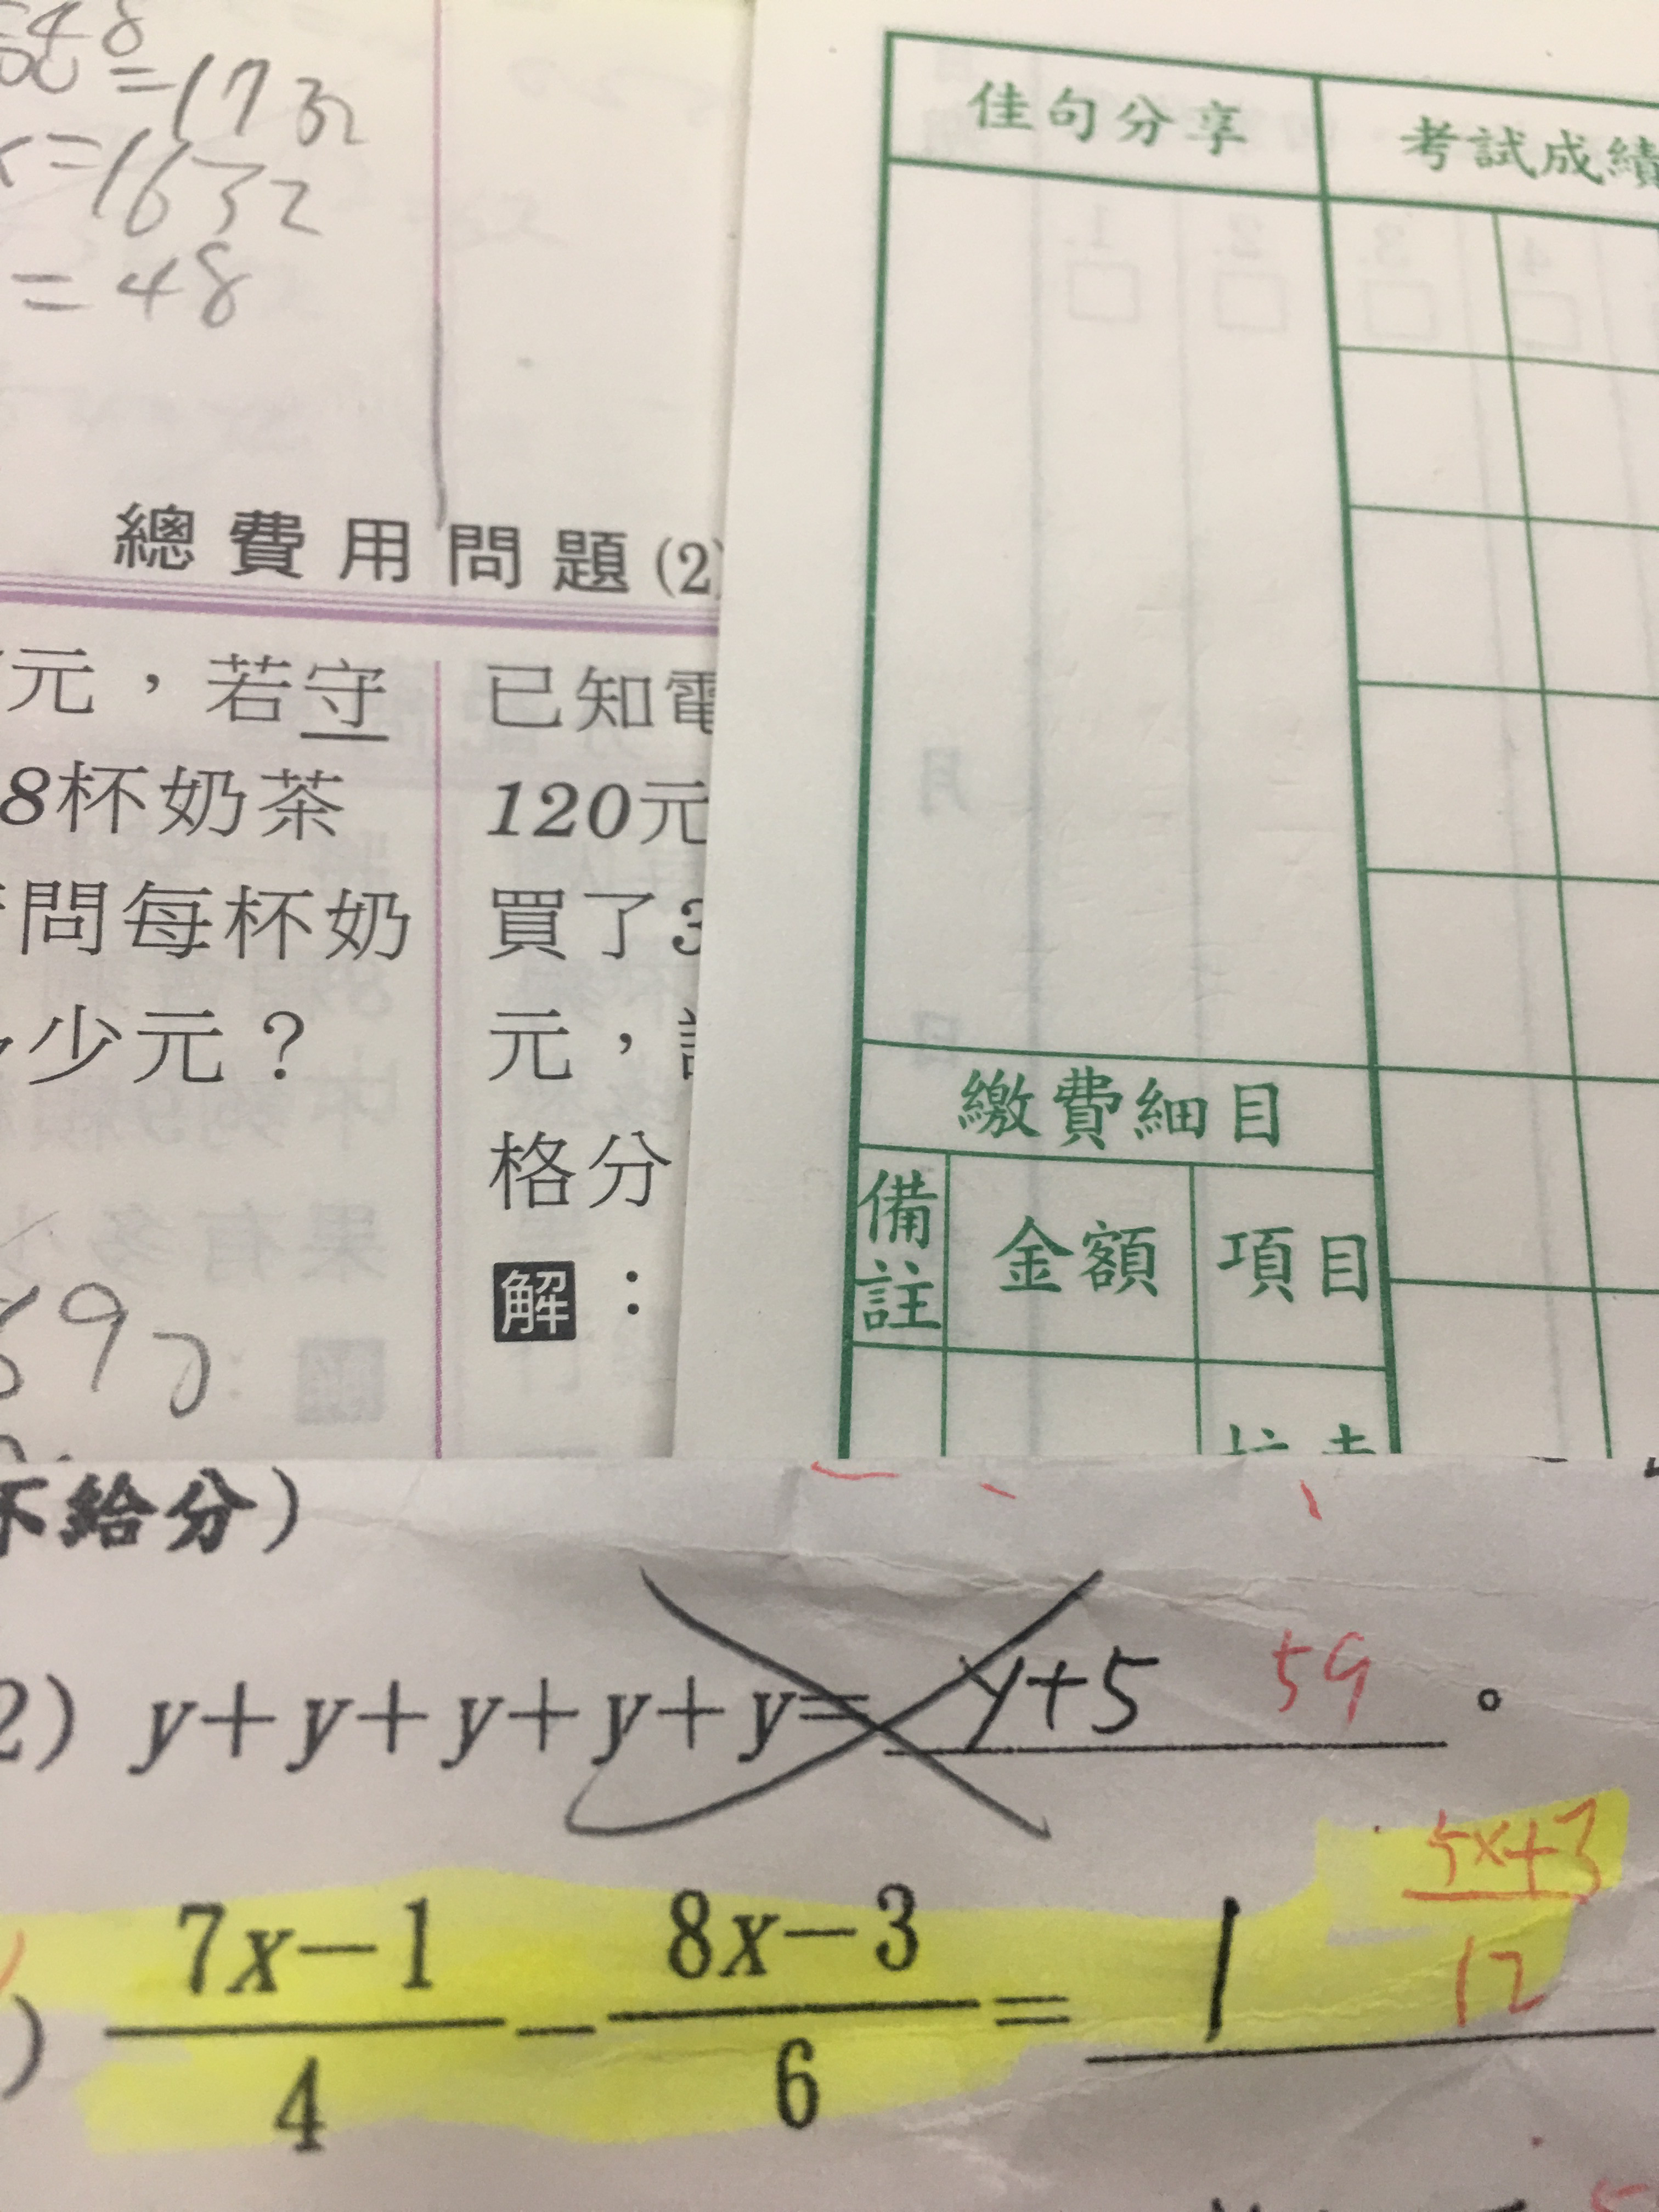 =1732
=1632
=48
總費用問題(2)
元，若守
8杯奶茶
問每杯奶
少元？
已知電
120元
買了3
元，
格分
解：
佳句分享
考試成績
繳費細目
備註
金額
項目
不給分）
2) y+y+y+y+y= y+5 59 。
) 7x-1/4 - 8x-3/6 = 1 5x+3/12